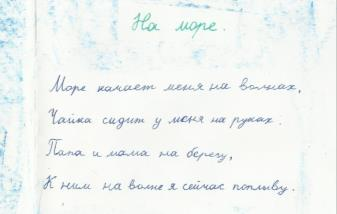 На море.
Море качает меня на волнах,
Чайка сидит у меня на руках.
Папа и мама на берегу,
К ним на волне я сейчас поплыву.